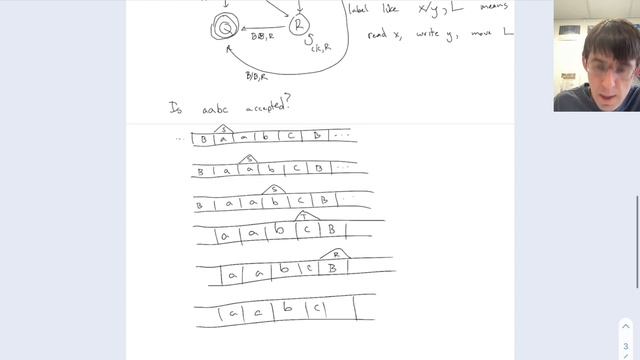 label like x/y, L means
Q B/B,R R
c/c,R
read x, write y, move L
B/B,R
Is aabc accepted?
S
... B a a b c B ...
S
B a a b c B ...
S
B a a b c B ...
T
a a b c B
R
a a b c B
a a b c
3